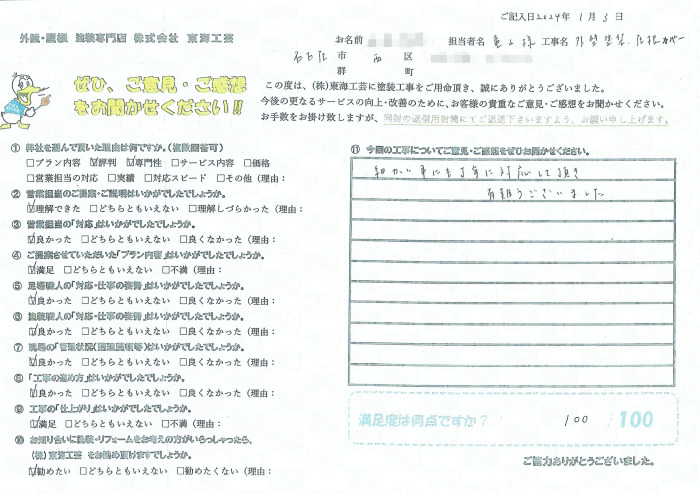 ご記入日2024年 1月 5日
外壁・屋根 塗装専門店 株式会社 東海工芸
お名前 担当者名 亀山様 工事名 外壁塗装、屋根カバー
名古屋 市 西 区
郡 町
ぜひ、ご意見・ご感想
をお聞かせください!!
この度は、(株)東海工芸に塗装工事をご用命頂き、誠にありがとうございました。
今後の更なるサービスの向上・改善のために、お客様の貴重なご意見・ご感想をお聞かせください。
お手数をお掛け致しますが、同封の返信用封筒にてご返送下さいますよう、お願い申し上げます。
① 弊社を選んで頂いた理由は何ですか。(複数回答可)
□プラン内容 ☑評判 ☑専門性 □サービス内容 □価格
□営業担当の対応 □実績 □対応スピード □その他(理由:
② 営業担当のご提案・ご説明はいかがでしたでしょうか。
☑理解できた □どちらともいえない □理解しづらかった(理由:
③ 営業担当の「対応」はいかがでしたでしょうか。
☑良かった □どちらともいえない □良くなかった(理由:
④ ご提案させていただいた「プラン内容」はいかがでしたでしょうか。
☑満足 □どちらともいえない □不満(理由:
⑤ 足場職人の「対応・仕事の姿勢」はいかがでしたでしょうか。
☑良かった □どちらともいえない □良くなかった(理由:
⑥ 塗装職人の「対応・仕事の姿勢」はいかがでしたでしょうか。
☑良かった □どちらともいえない □良くなかった(理由:
⑦ 現場の「管理状況(整理整頓等)はいかがでしたでしょうか。
☑良かった □どちらともいえない □良くなかった(理由:
⑧ 「工事の進め方」はいかがでしたでしょうか。
☑良かった □どちらともいえない □良くなかった(理由:
⑨ 工事の「仕上がり」はいかがでしたでしょうか。
☑満足 □どちらともいえない □不満(理由:
⑩ お知り合いに塗装・リフォームをお考えの方がいらっしゃったら、
(株)東海工芸 をお勧め頂けますでしょうか。
☑勧めたい □どちらともいえない □勧めたくない(理由:
⑪ 今回の工事についてご意見・ご感想をぜひお聞かせください。
細かい事にも丁寧に対応して頂き
有難うございました
満足度は何点ですか? 100 /100
ご協力ありがとうございました。